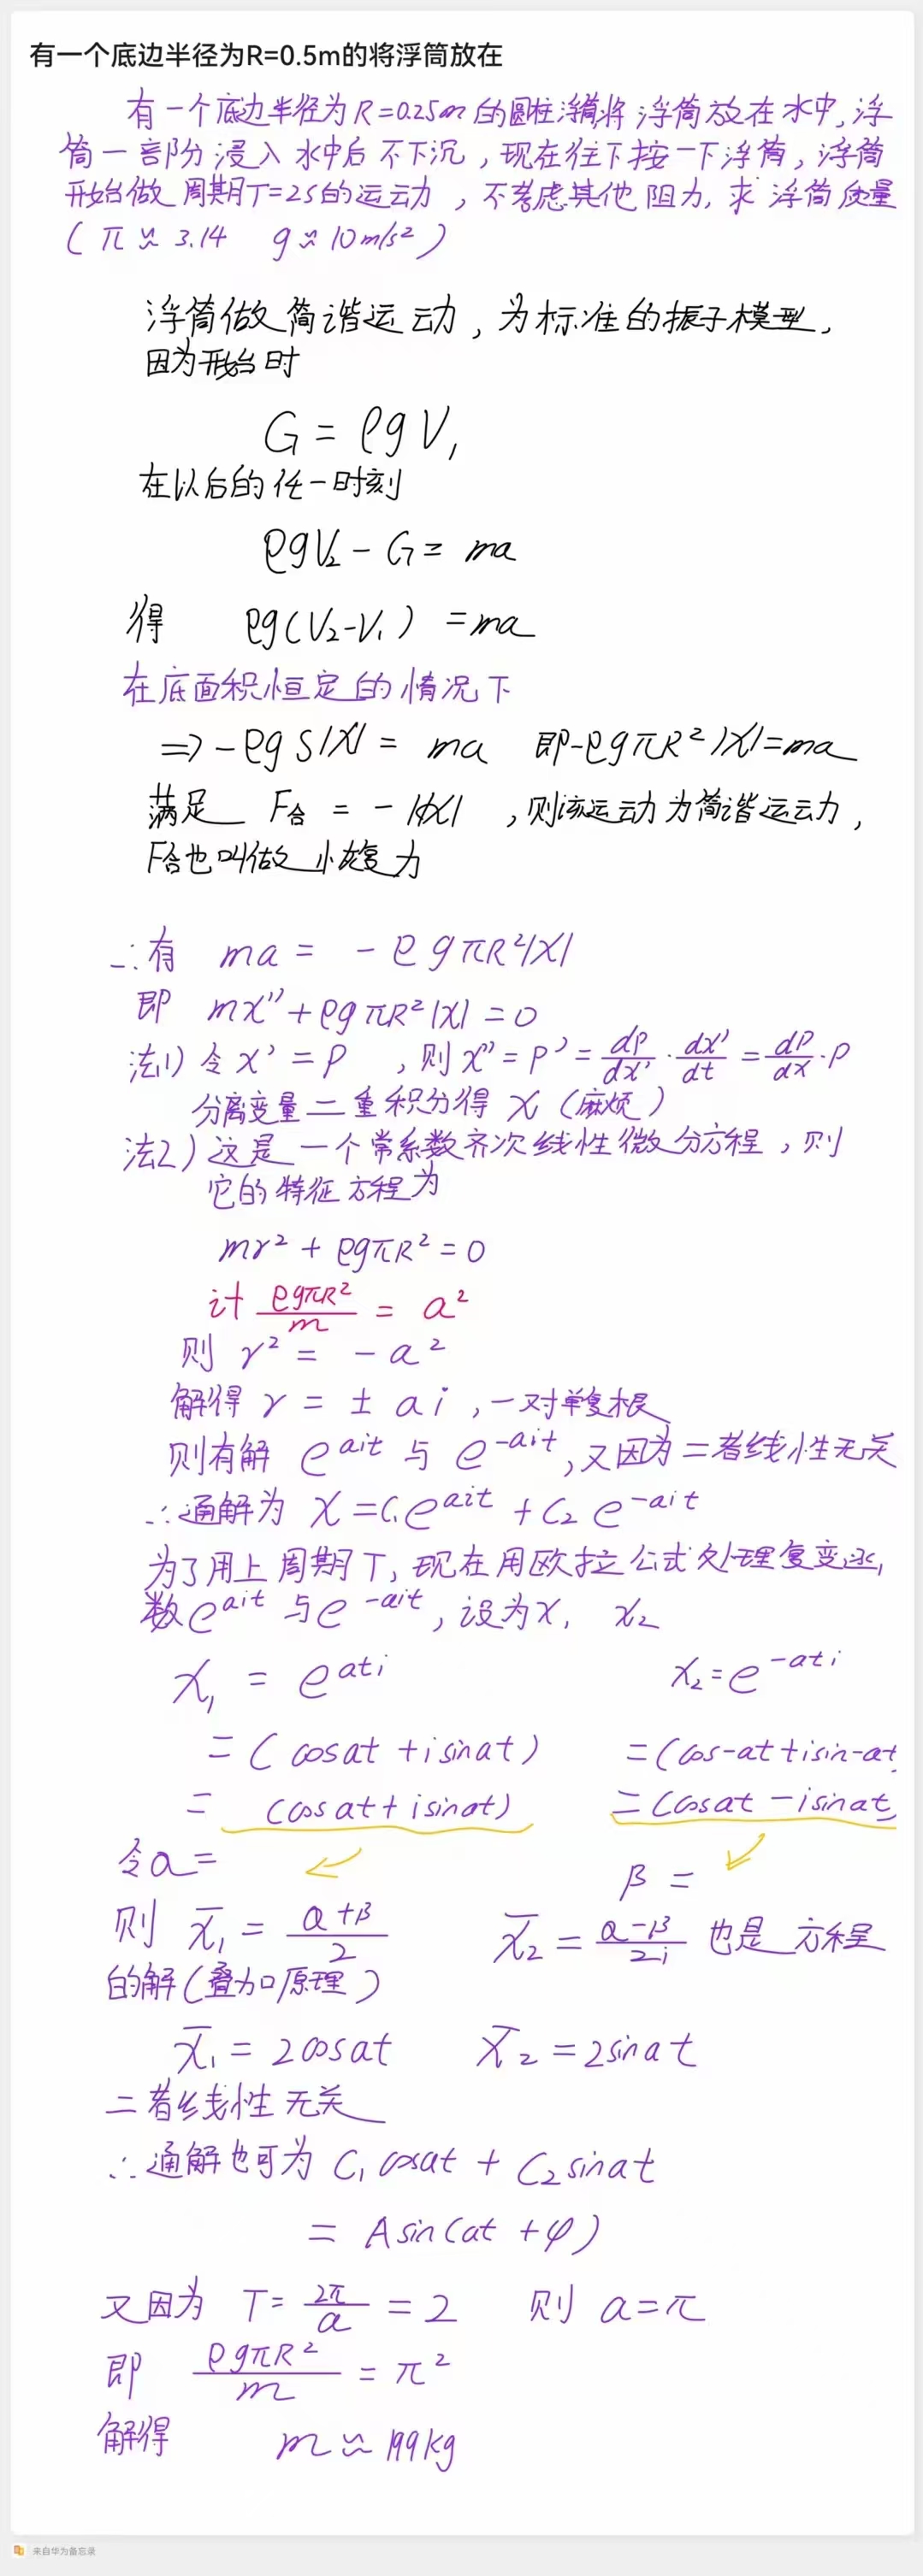 有一个底边半径为R=0.5m的将浮筒放在
有一个底边半径为R=0.25m的圆柱浮筒,将浮筒放在水中,浮
筒一部分浸入水中后不下沉,现在往下按一下浮筒,浮筒
开始做周期T=2S的运动,不考虑其他阻力,求浮筒质量
(π≈3.14 g≈10m/s²)
浮筒做简谐运动,为标准的振子模型,
因为开始时
G=ρgV₁
在以后的任一时刻
ρgV₂-G=ma
得 ρg(V₂-V₁)=ma
在底面积恒定的情况下
⇒-ρgS|X|=ma 即-ρgπR²|X|=ma
满足 F合=-k|X|,则该运动为简谐运动,
F合也叫做恢复力
∴有 ma=-ρgπR²|X|
即 mx''+ρgπR²|X|=0
法1)令x'=P,则x''=P'=dp/dx'·dx'/dt=dP/dx·P
分离变量二重积分得X(麻烦)
法2)这是一个常系数齐次线性微分方程,则
它的特征方程为
mr²+ρgπR²=0
计 ρgπR²/m=a²
则 r²=-a²
解得r=±ai,一对单复根
则有解 e^ait 与 e^-ait,又因为二者线性无关
∴通解为 X=C₁e^ait+C₂e^-ait
为了用上周期T,现在用欧拉公式处理复变函
数e^ait与e^-ait,设为X₁ X₂
X₁=e^ati X₂=e^-ati
=(cosat+isinat) =(cos-at+isin-at
= (cosat+isinat) =(cosat-isinat)
令α= β=
则 X̄₁=α+β/2 X̄₂=α-β/2i 也是方程
的解(叠加原理)
X̄₁=2cosat X̄₂=2sinat
二者线性无关
∴通解也可为 C₁cosat+C₂sinat
=Asin(at+φ)
又因为 T=2π/a=2 则 a=π
即 ρgπR²/m=π²
解得 m≈199kg
来自华为备忘录